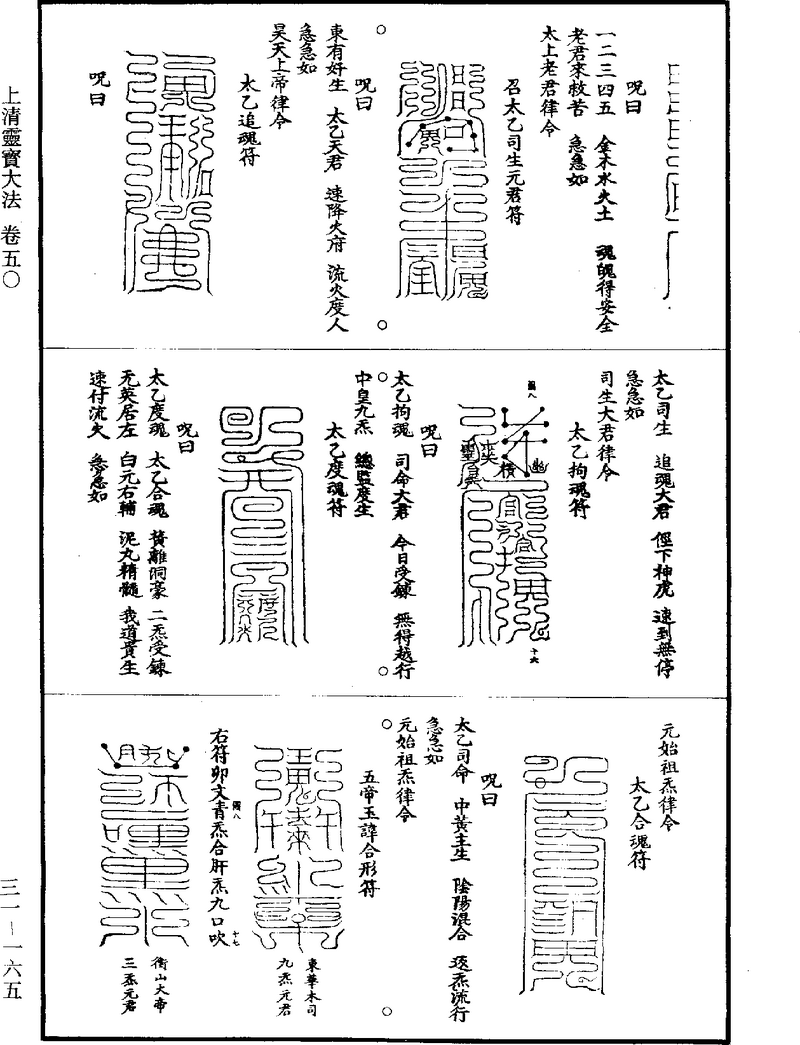 上清靈寶大法　卷五〇
三一－一六五
呪曰
一二三四五　金木水火土　魂魄得安全
老君來救苦　急急如
太上老君律令
召太乙司生元君符
呪曰
東有好生　太乙天君　速降火府　流火度人
急急如
昊天上帝律令
太乙追魂符
呪曰
太乙司生　追魂大君　徑下神虎　速到無停
急急如
司生大君律令
太乙拘魂符
呪曰
太乙拘魂　司命大君　今日受鍊　無得越行
中皇九炁　總監度生
太乙度魂符
呪曰
太乙度魂　太乙合魂　黃離洞豪　二炁受鍊
无英居左　白元右輔　泥丸精髓　我道貴生
速付流火　急急如
元始祖炁律令
太乙合魂符
呪曰
太乙司命　中黃主生　陰陽混合　返炁流行
急急如
元始祖炁律令
五帝玉諱合形符
東華木司
九炁元君
右符卯文青炁合肝炁九口吹
衡山大帝
三炁元君
十六
十七